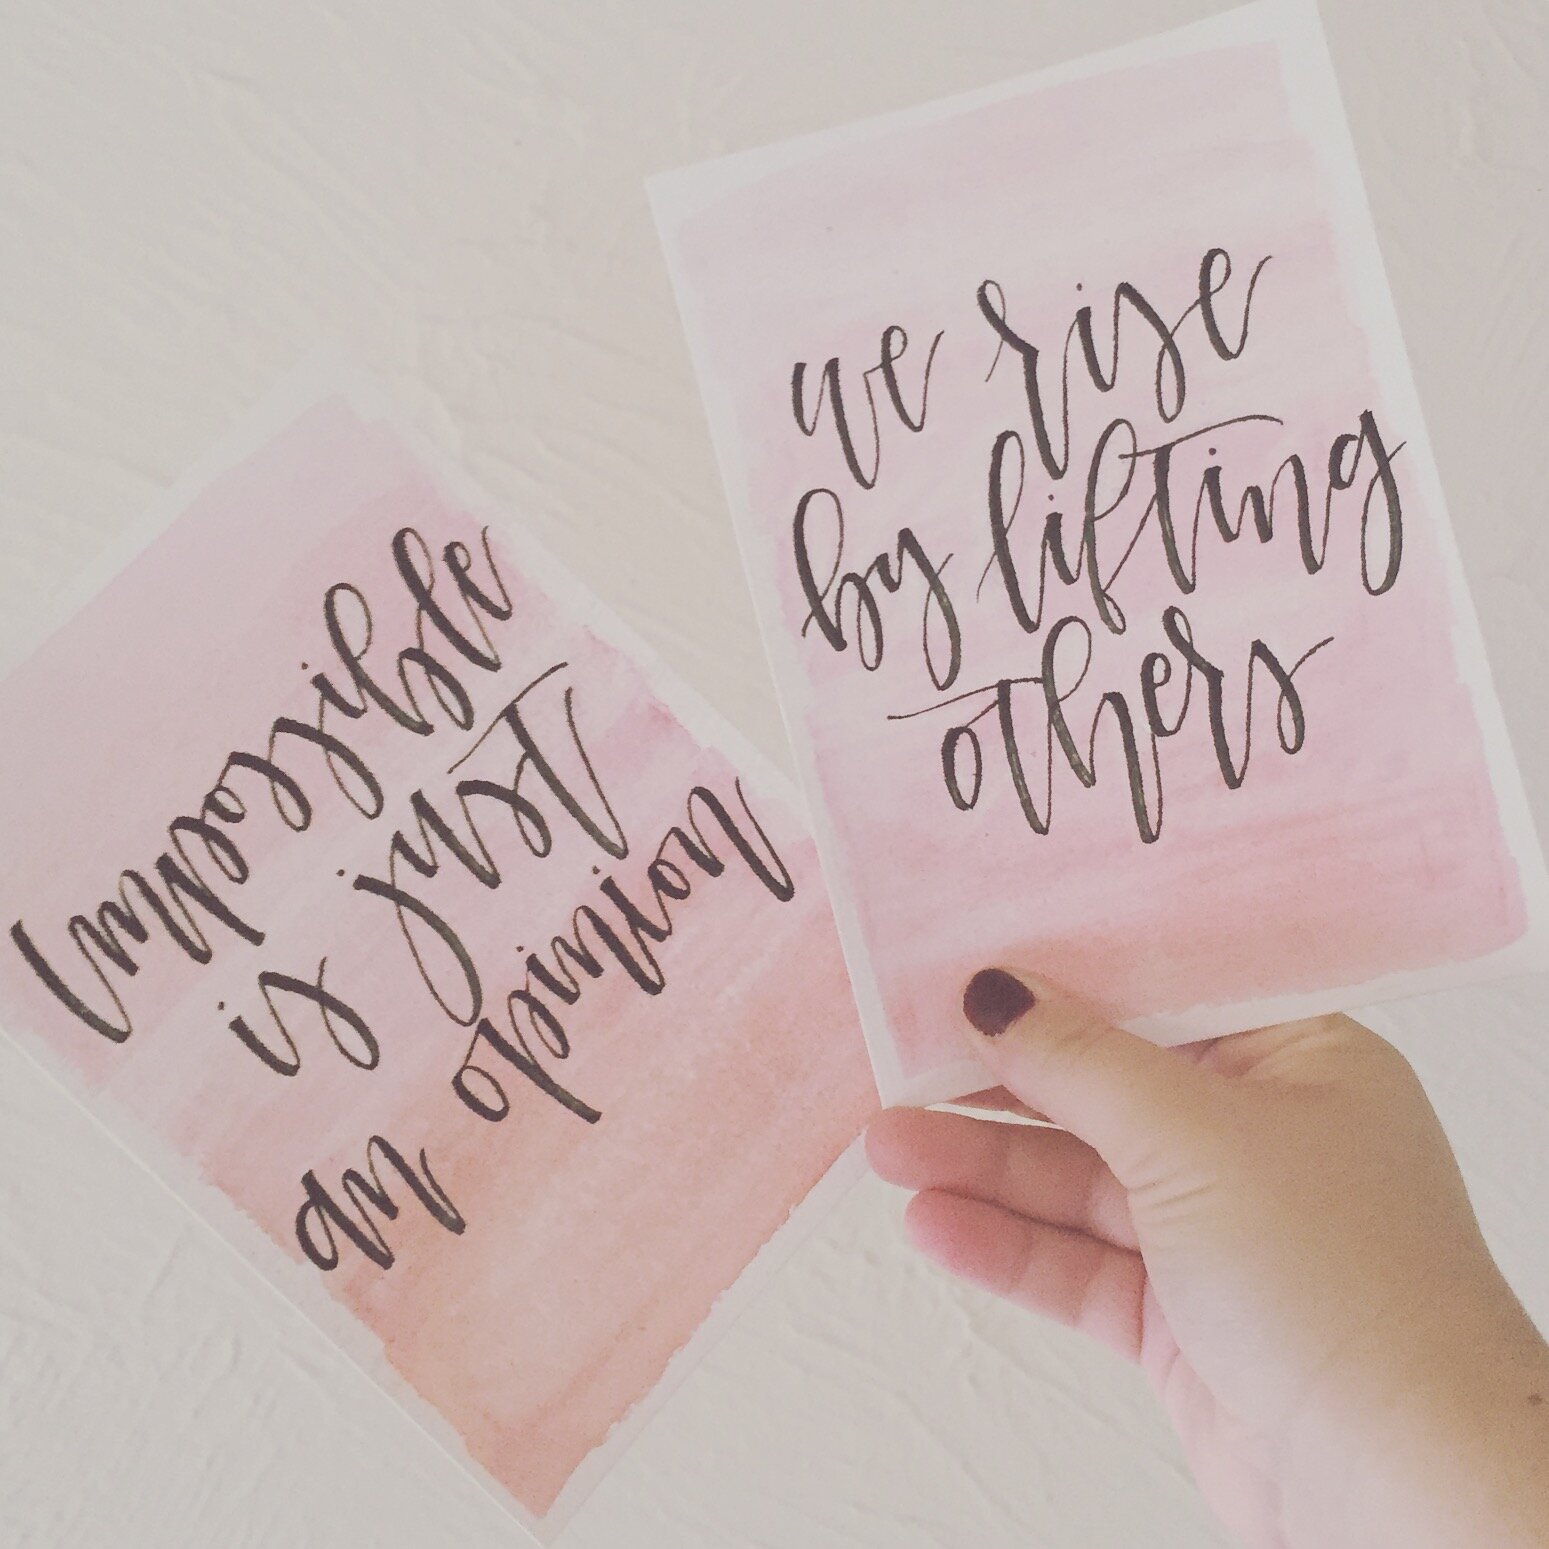 Impossible
is just
an opinion
we rise
by lifting
others